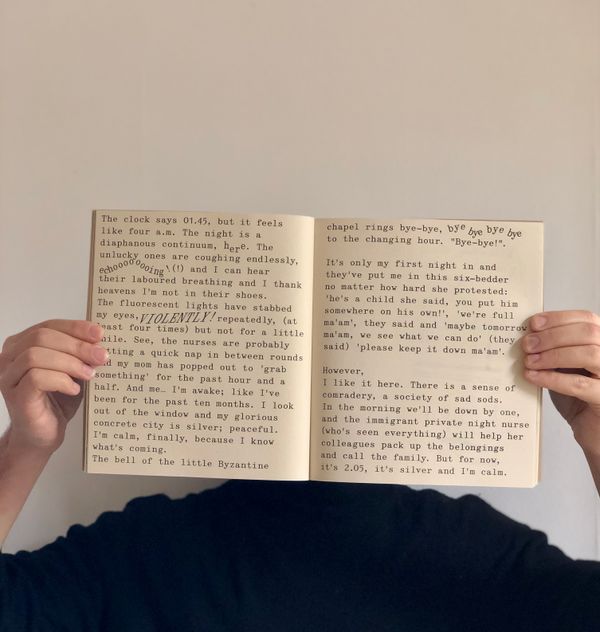 The clock says 01.45, but it feels
like four a.m. The night is a
diaphanous continuum, here. The
unlucky ones are coughing endlessly,
echoooooooing (!) and I can hear
their laboured breathing and I thank
heavens I'm not in their shoes.
The fluorescent lights have stabbed
my eyes, VIOLENTLY! repeatedly, (at
least four times) but not for a little
while. See, the nurses are probably
getting a quick nap in between rounds
and my mom has popped out to 'grab
something' for the past hour and a
half. And me… I'm awake; like I've
been for the past ten months. I look
out of the window and my glorious
concrete city is silver; peaceful.
I'm calm, finally, because I know
what's coming.
The bell of the little Byzantine
chapel rings bye-bye, bye bye bye bye
to the changing hour. "Bye-bye!".
It's only my first night in and
they've put me in this six-bedder
no matter how hard she protested:
'he's a child she said, you put him
somewhere on his own!', 'we're full
ma'am', they said and 'maybe tomorrow
ma'am, we see what we can do' (they
said) 'please keep it down ma'am'.
However,
I like it here. There is a sense of
comradery, a society of sad sods.
In the morning we'll be down by one,
and the immigrant private night nurse
(who's seen everything) will help her
colleagues pack up the belongings
and call the family. But for now,
it's 2.05, it's silver and I'm calm.